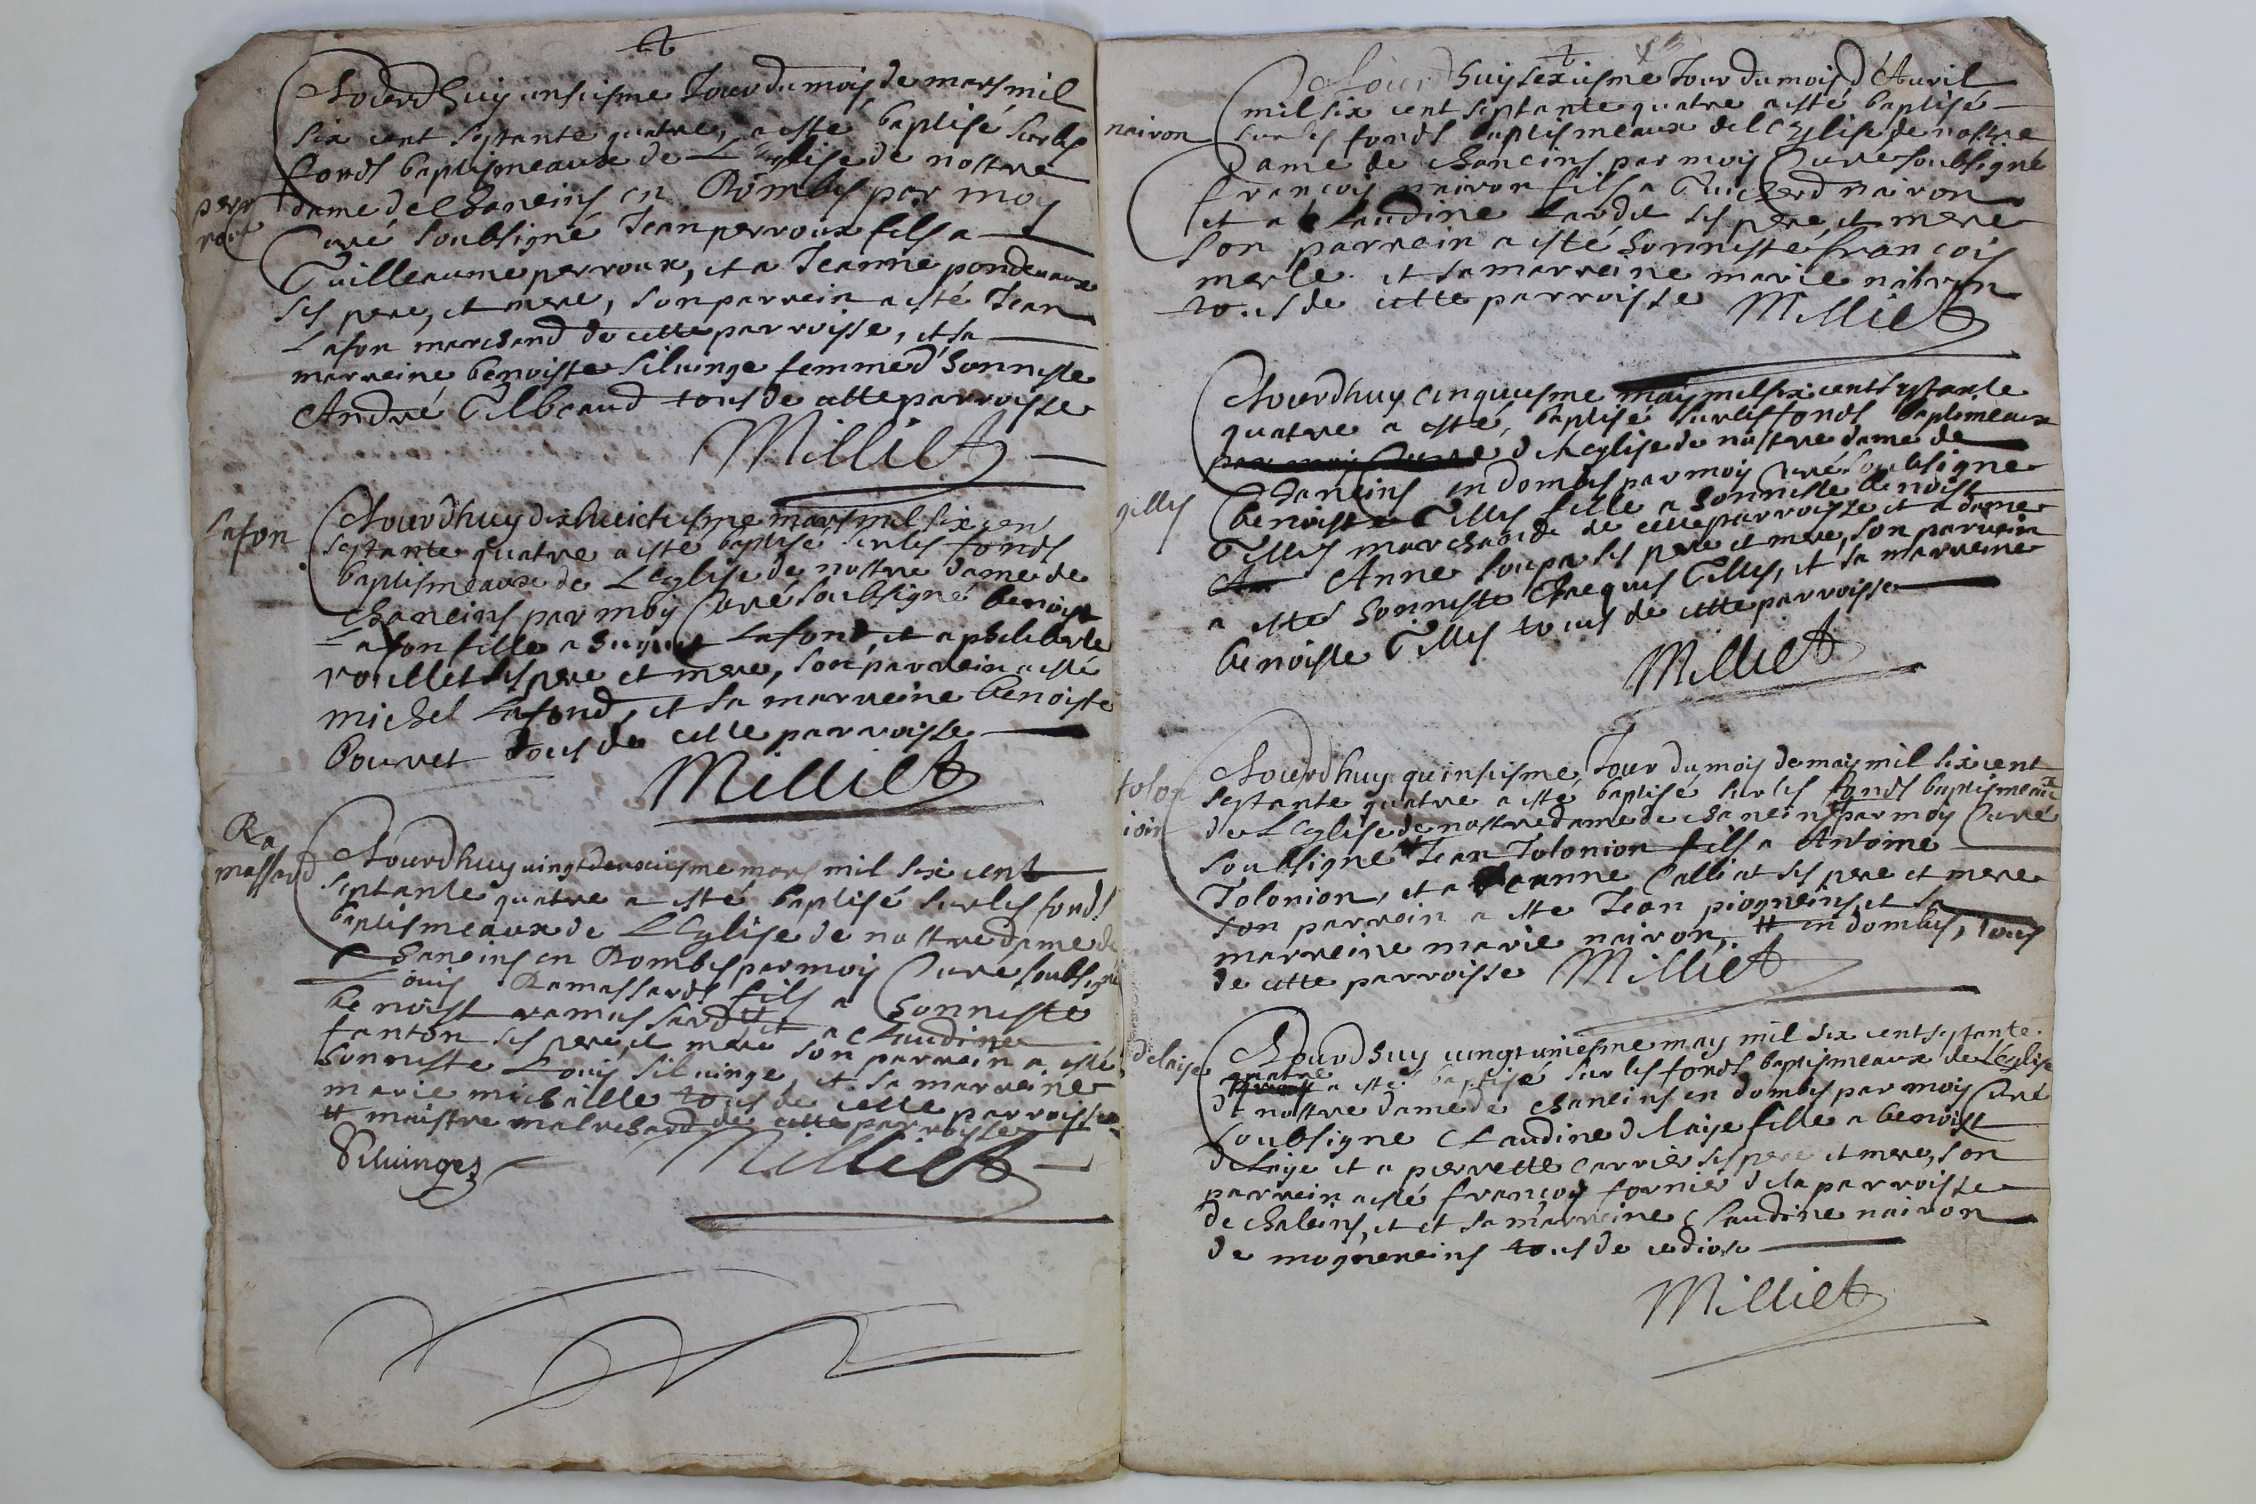 Aujourdhuy unsiesme Jour du mois de mars mil
six cent septante quatre, a esté baptisé sur les
fonds baptismeaux de L'eglise de nostre
dame de Chaneins en Dombes par moy
perr
roux
Curé soubsigné Jean perroux fils a
Guilleaume perroux, et a Jeanne pondevaux
ses pere, et mere, son parrein a esté Jean
Lafon marchand de cette parroisse, et sa
marreine benoiste siluinge femme d'honneste
André Gilbeaud tous de cette parroisse
Milliet
Lafon
Aujourdhuy dixhuictiesme mars mil six cen
septante quatre a esté baptisé sur les fonds
baptismeaux de L'eglise de nostre dame de
Chaneins par moy Curé soubsigné benoist
Lafon fille a Lafond et a philiberte
rouellet ses pere et mere, son parrein a esté
michel Lafond, et sa marreine benoiste
Pouvret tous de cette parroisse
Milliet
Ra
massard
Aujourdhuy uingtdeuxiesme mars mil six cent
septante quatre a esté baptisé sur les fonds
baptismeaux de L'Eglise de nostre dame de
Chaneins en Dombes par moy Curé soubsigné
Louis Ramassards fils a honneste
benoist ramassard # et a Claudine
fanton ses pere, et mere son parrein a esté
honneste Louis siluinge, et sa marreine
marie michaille tous de cette parroisse
# maistre marechard de cette parroisse
Siluinges Milliet
Aujourdhuy sexiesme Jour du mois d'Auril
mil six cent septante quatre a esté baptisé
nairon
sur les fonds baptismeaux de l'Eglise de nostre
Dame de Chaneins par moy Curé soubsigné
francois nairon fils a Guicherd nairon
et a Claudine Lardet ses pere et mere
son parrein a esté honneste francois
merle et sa marreine marie nairon
tous de cette parroisse Milliet
Aujourdhuy cinquiesme may mil six cent septante
quatre a esté, baptisé sur les fonds baptismeaux
par moy Curé de l'eglise de nostre dame de
gilles
Chaneins en dombes par moy Curé soubsigné
benoiste Gilles fille a honneste benoist
Gilles marchand de cette parroisse et a dame
Anne Loupa ses pere et mere, son parrein
a esté honneste Jacques Gilles, et sa marreine
benoiste Gilles tous de cette parroisse
Milliet
tolon
ion
Aujourdhuy quinsiesme Jour du mois de may mil six cent
septante quatre a esté baptisé sur les fonds baptismeaux
de L'Eglise de nostre dame de Chaneins par moy Curé
soubsigné Jean Tolonion fils a Antoine
Tolonion, et a Jeanne Calliat ses pere et mere
son parrein a esté Jean piogneins, et sa
marreine marie nairon, # en dombes, tous
de cette parroisse Milliet
delaise
Aujourdhuy uingt uniesme may mil six cent septante
quatre a esté baptisé sur les fonds baptismeaux de L'eglise
de nostre dame de Chaneins en dombes par moy Curé
soubsigné Claudine delaije fille a benoist
delaije et a pierrette Carrier ses pere et mere, son
parrein a esté françoy fornier de la parroisse
de chaleins, et et sa marreine Claudine nairon
de mogneneins tous de ce diose
Milliet